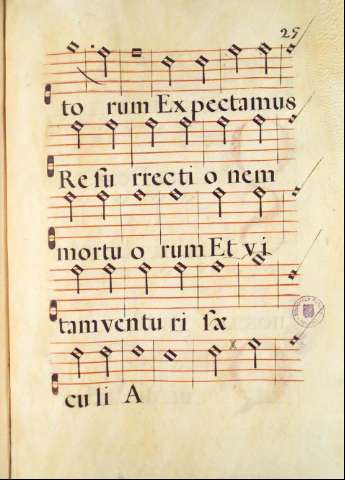 25
to rum Expectamus
Resu rrecti o nem
mortu o rum Et vi
tam ventu ri sæ
culi A